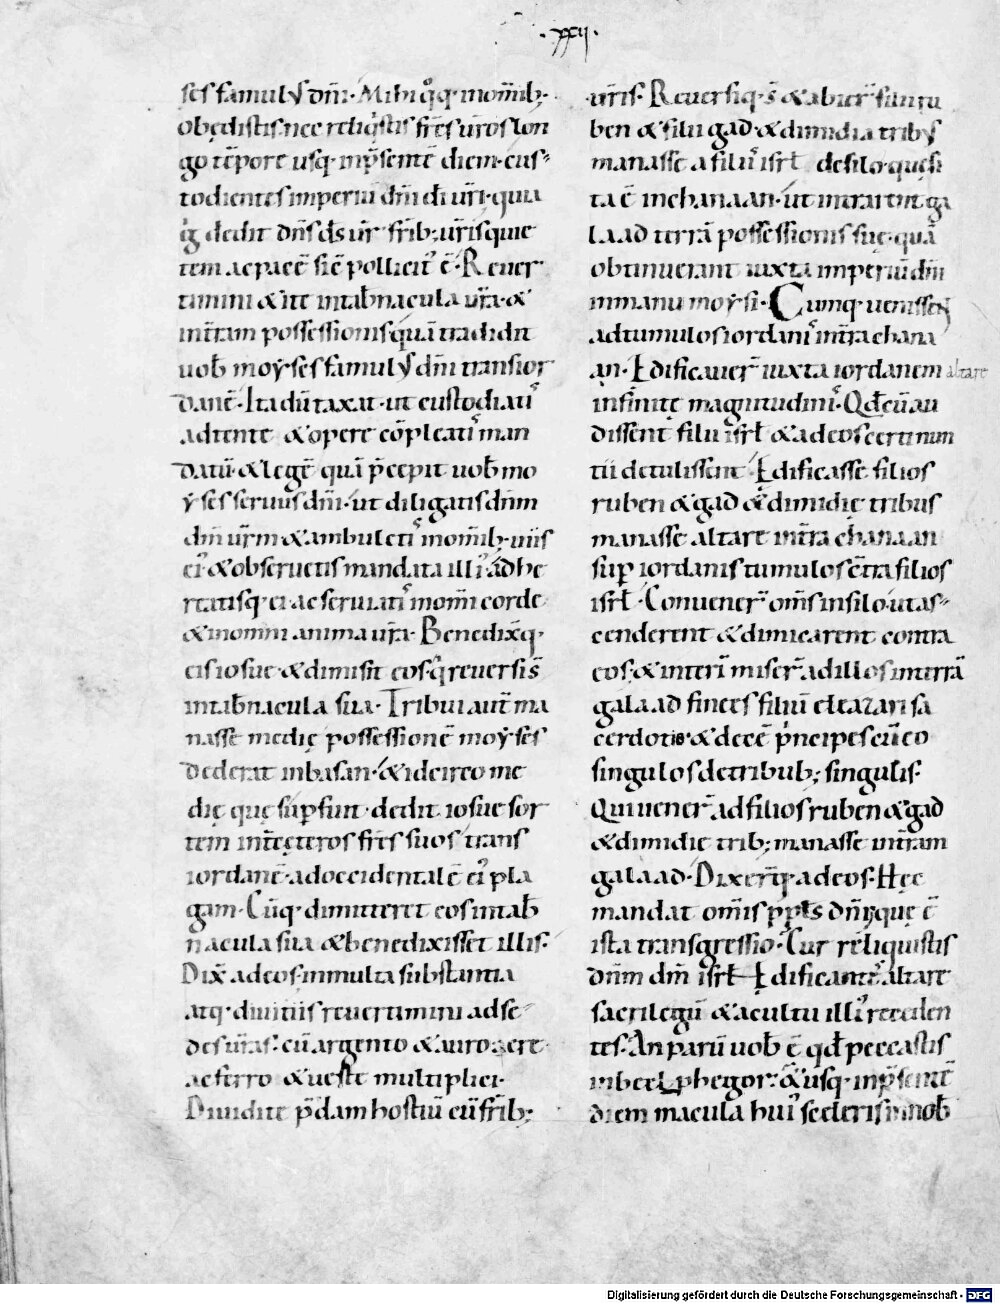 ·xxii·
ses famul᷒ dn̄i· Mihi qͦq; in om̄ib;
obedistis· nec reliq̇stis fr̄es ur̄os lon
go tēpore usq; in p̄sentē diem· cus-
todientes imperiū dn̄i dī ur̄i· quia
ig̊ dedit dn̄s ds̄ ur̄ fr̄ib; ur̄is quie
tem ac pacē sic̄ pollicit᷒ ē· Reuer
timini & ite in tab̄nacula ur̄a· &
in tr̄am possessionis quā tradidit
uob̄ moyses famul᷒ dn̄i trans ior
danē· Ita dūtaxat· ut custodiati᷒
adtente & opere cōpleati᷒ man
datū & legē quā p̄cepit uob̄ mo
yses seruus dn̄i· ut diligatis dn̄m
dm̄ ur̄m & ambuleti᷒ in om̄ib; uiis
ei᷒ & obseruetis mandata illi᷒ adhe
reatisq; ei ac seruiati᷒ in om̄i corde
& in omni anima ur̄a· Benedixq;
eis iosue & dimisit eos· q̇ reuersi s̄
in tab̄nacula sua· Tribui aut̄ ma
nasse medię possessionē moyses
dederat in basan· & idcirco me
dię quę sup̄ fuit· dedit iosue sor
tem int̄ cęteros fr̄es suos trans
iordanē· ad occidentalē ei᷒ pla
gam· Cūq; dimitteret eos in tab̄
nacula sua & benedixisset illis·
Dix̄ ad eos· in multa substantia
atq; diuitiis reuertimini ad se-
des ur̄as· cū argento & auro· aere
ac ferro & ueste multiplici·
Diuidite p̄dam hostiū cū fr̄ib;
ur̄is· Reuersiq; s̄ & abier̄ filii ru
ben & filii gad· & dimidia trib᷒
manasse a filiis isrł de silo· quę si
ta ē in chanaan· ut intrarent ga
laad terrā possessionis suę· quā
obtinuerant iuxta imperiū dn̄i
in manu moysi· Cumq; uenissent
ad tumulos iordani᷒ in tr̄a chana
an· Edificauer̄ iuxta iordanem altare
infinitę magnitudini᷒· Qđ cū au
dissent filii isrł & ad eos certi nun
tii detulissent· Edificasse filios
ruben & gad & dimidię tribus
manasse altare in tr̄a chanaan
sup̄ iordanis tumulos cōtra filios
isrł· Conuener̄ om̄s in silo· ut as-
cenderent & dimicarent contra
eos· & interī miser̄ ad illos in terrā
galaad finees filiū eleazari sa
cerdotis· & decē p̄ncipes cū eo
singulos de tribub; singulis·
Qui uener̄ ad filios ruben & gad
& dimidię trib; manasse in tr̄am
galaad· Dixer̄q; ad eos· Hęc
mandat om̄is pp̄ls dn̄i· quę ē
ista transgressio· Cur reliquistis
dn̄m dm̄ isrł· Edificante᷒ altare
sacrilegū & a cultu illi᷒ receden
tes· An parū uob̄ ē qđ peccastis
in beelphegor· & usq; in p̄sentē
diem macula hui᷒ sceleris in nob̄
Digitalisierung gefördert durch die Deutsche Forschungsgemeinschaft - DFG